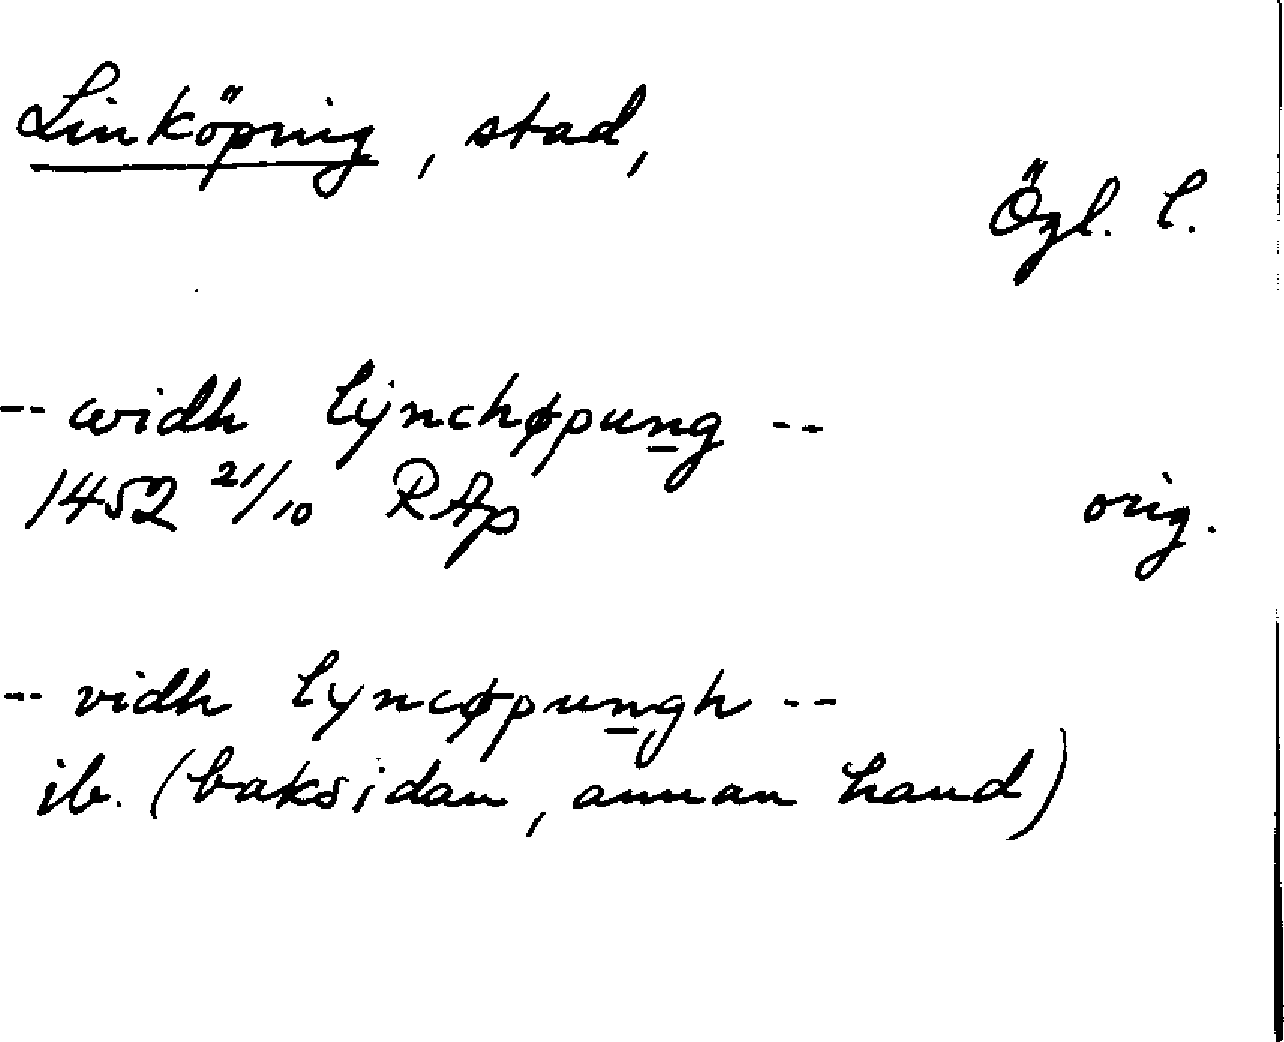 Linköping, stad,
Ögl. l.
-- widh lijnchøpung --
1452 21/10 RAp
orig.
-- vidh lyncøpungh --
ib. (baksidan, annan hand)